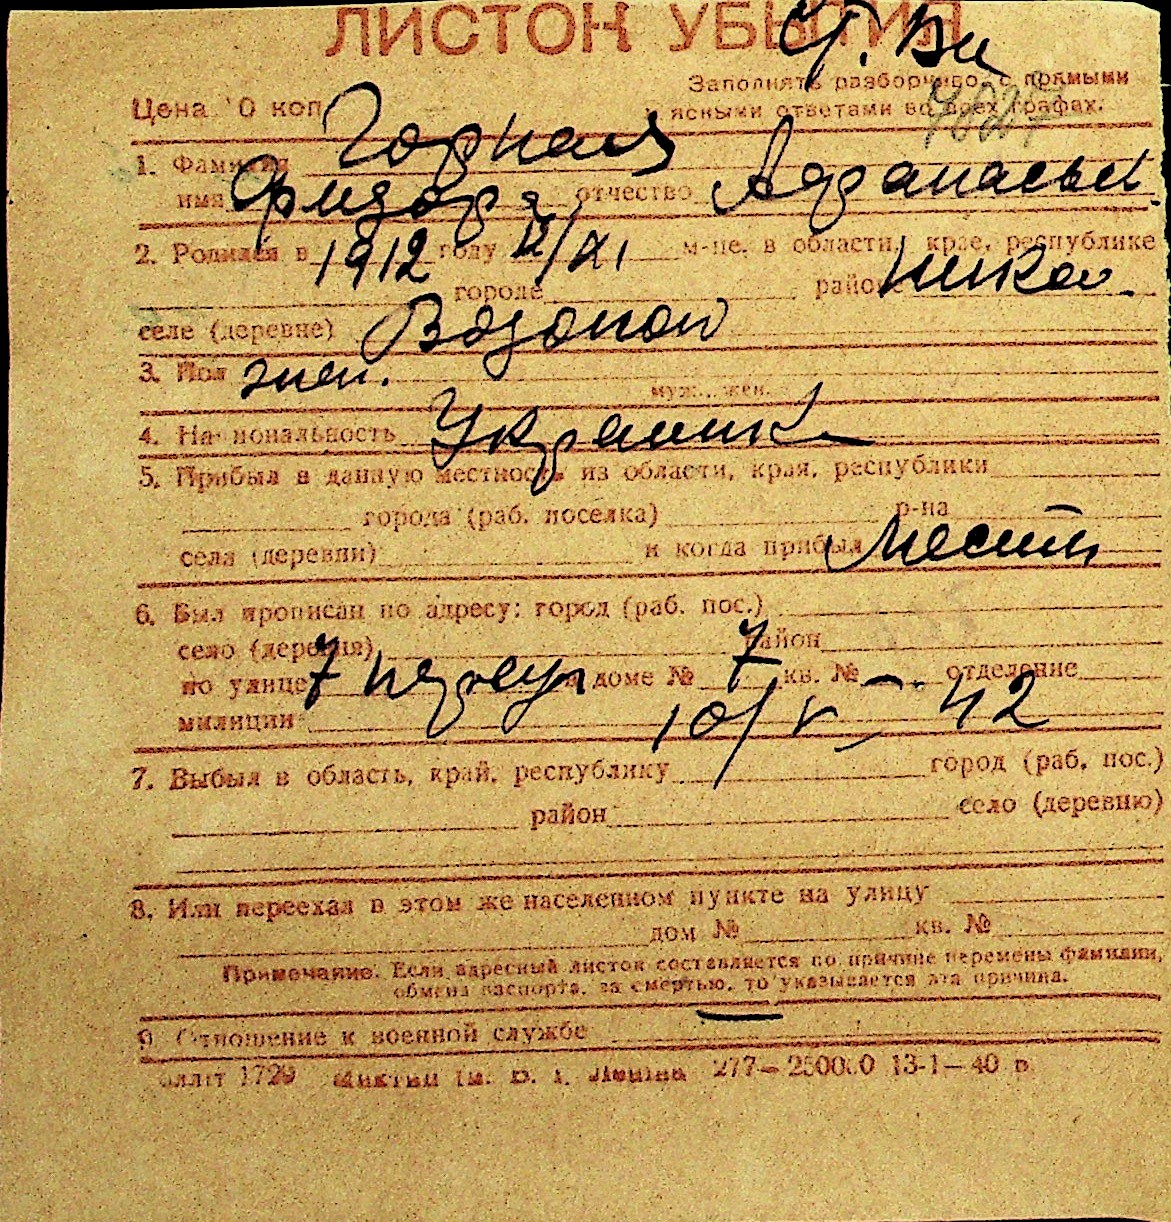 ЛИСТОК УБЫТИЯ
Заполнять разборчиво, с прямыми
Цена 10 коп. и ясными ответами во всех графах.
1. Фамилия Горная
имя Фидора отчество Афанасьев.
2. Родился в 1912 году 12/XI м-це, в области, крае, республике
городе районе Никол.
селе (деревне) Водопой
3. Пол жен. муж... жен.
4. Национальность Украинка
5. Прибыл в данную местность из области, края, республики
города (раб. поселка) р-на
села (деревни) и когда прибыл местн
6. Был прописан по адресу: город (раб. пос.)
село (деревня) район
по улице 7 переул в доме № 7 кв. № —. отделение
милиции 10/V — 42
7. Выбыл в область, край, республику город (раб. пос.)
район село (деревню)
8. Или переехал в этом же населенном пункте на улицу
дом № кв. №
Примечание. Если адресный листок составляется по причине перемены фамилии,
обмена паспорта, за смертью, то указывается эта причина.
9. Отношение к военной службе —
1729 Ленина 277—250000 13-1—40 в.